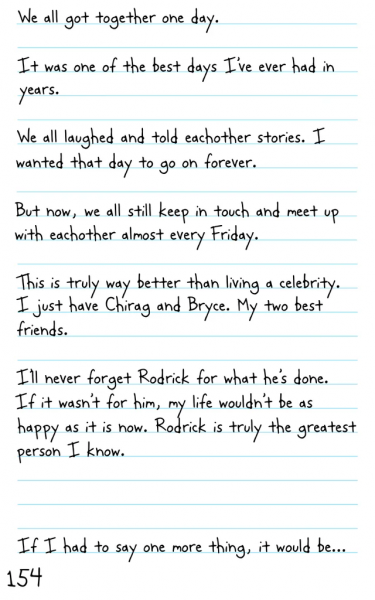 We all got together one day.
It was one of the best days I've ever had in
years.
We all laughed and told eachother stories. I
wanted that day to go on forever.
But now, we all still keep in touch and meet up
with eachother almost every Friday.
This is truly way better than living a celebrity.
I just have Chirag and Bryce. My two best
friends.
I'll never forget Rodrick for what he's done.
If it wasn't for him, my life wouldn't be as
happy as it is now. Rodrick is truly the greatest
person I know.
If I had to say one more thing, it would be...
154